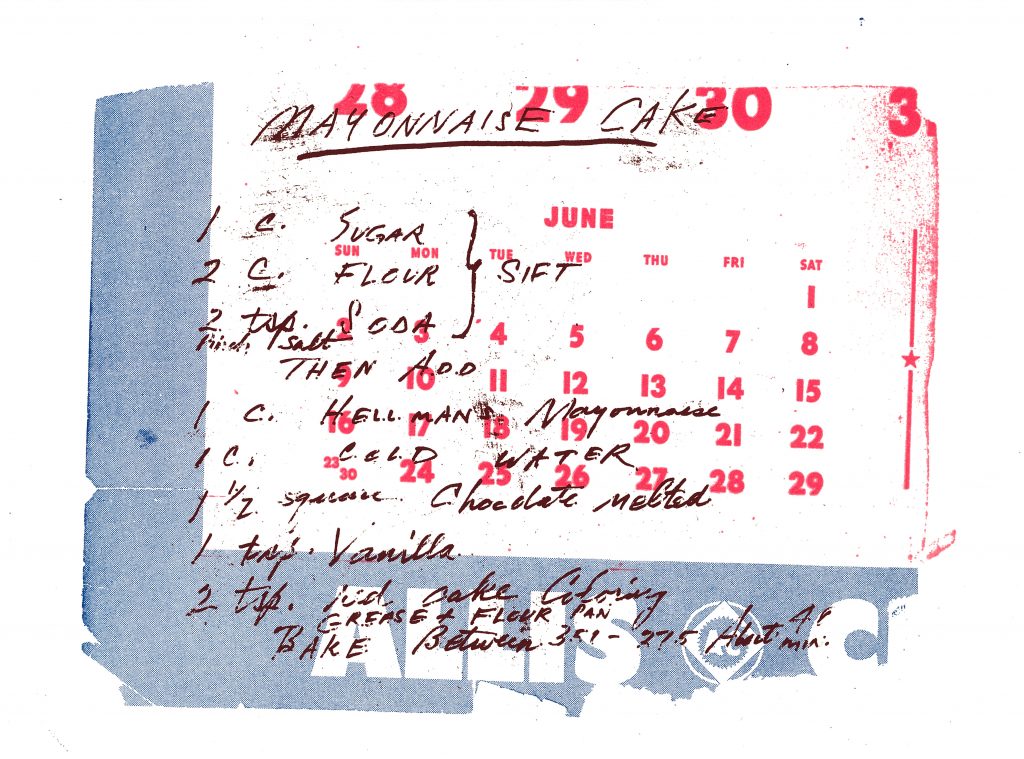 28 29 30 3
MAYONNAISE CAKE
JUNE
1 C. SUGAR
SUN MON TUE WED THU FRI SAT
2 C. FLOUR } SIFT
1
2 tsp. SODA
2 3 4 5 6 7 8
Pinch salt
THEN ADD
9 10 11 12 13 14 15
1 C. HELLMANS Mayonnaise
16 17 18 19 20 21 22
1 C. COLD WATER
23 30 24 25 26 27 28 29
1 1/2 square Chocolate melted
1 tsp. Vanilla
2 tsp. red cake Coloring
GREASE & FLOUR PAN
BAKE Between 35 - 275 About min.
ALLIS AC C